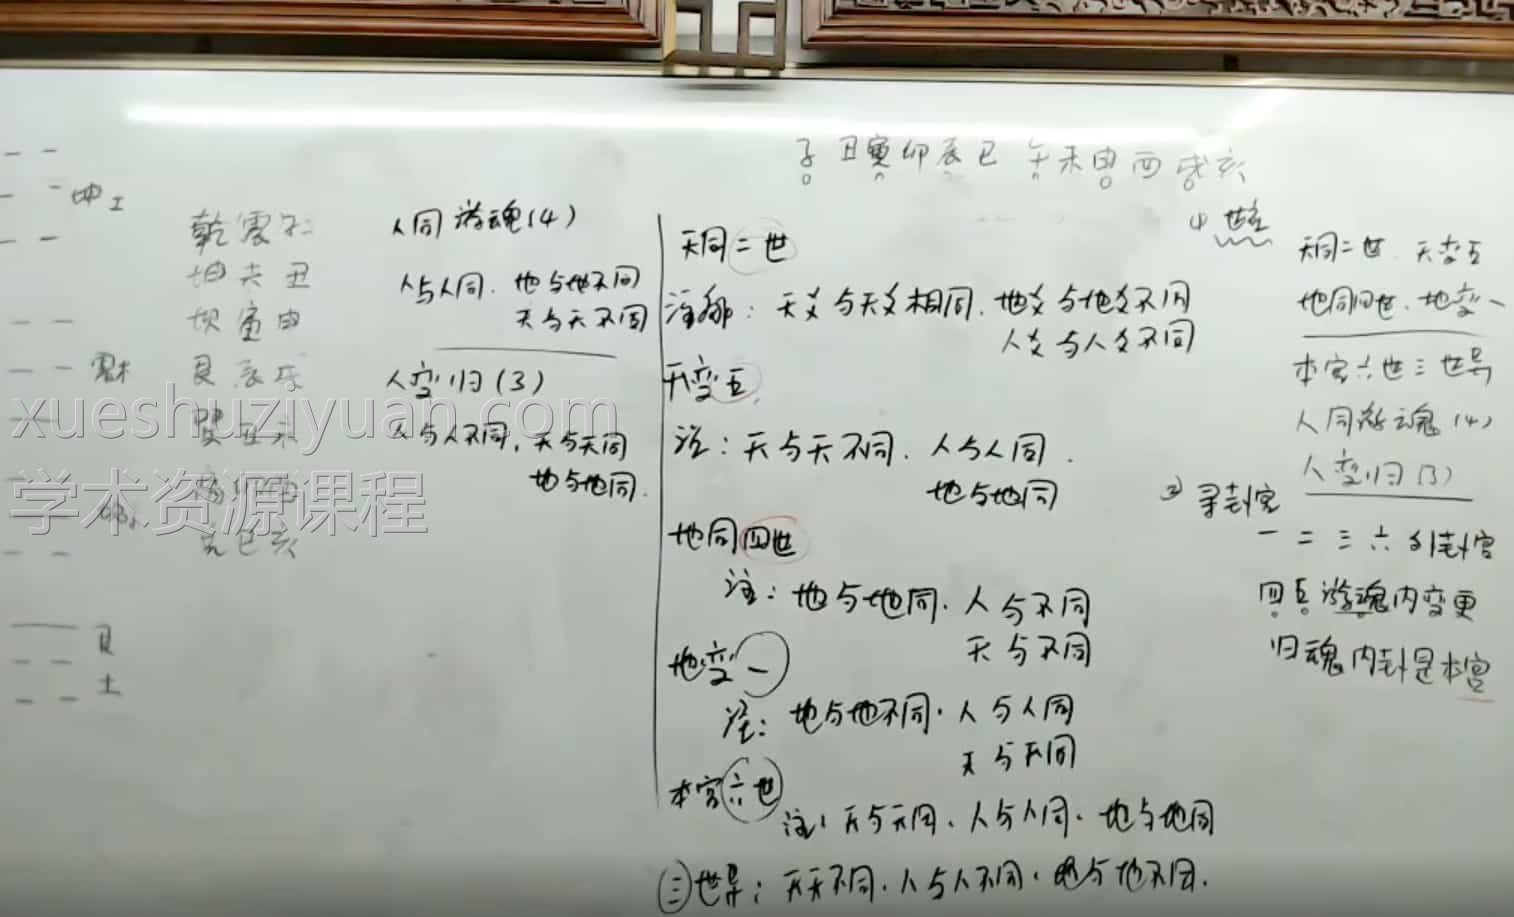 子丑寅卯辰巳午未申酉戌亥
坤土
乾震子
坤 丑
坎寅申
艮辰
巳亥
艮
土
人同游魂(4)
人与人同.地与地不同
天与天不同
人变归(3)
人与人不同,天与天同
地与地同.
天同二世
注解:天爻与天爻相同.地爻与地爻不同
人爻与人爻不同
天变五.
注:天与天不同.人与人同.
地与地同
地同四世
注:地与地同.人与不同
天与不同
地变一
注:地与地不同.人与人同
天与天同
本宫六世
注:天与天同.人与人同.地与地同
三世异:天天不同.人与人不同.地与地不同.
天同二世.天变五
地同四世.地变一
本宫六世三世异
人同游魂(4)
人变归(3)
② 寻卦宫
一二三六外卦宫
四五游魂内变更
归魂内卦是本宫
xueshuziyuan.com
学术资源课程